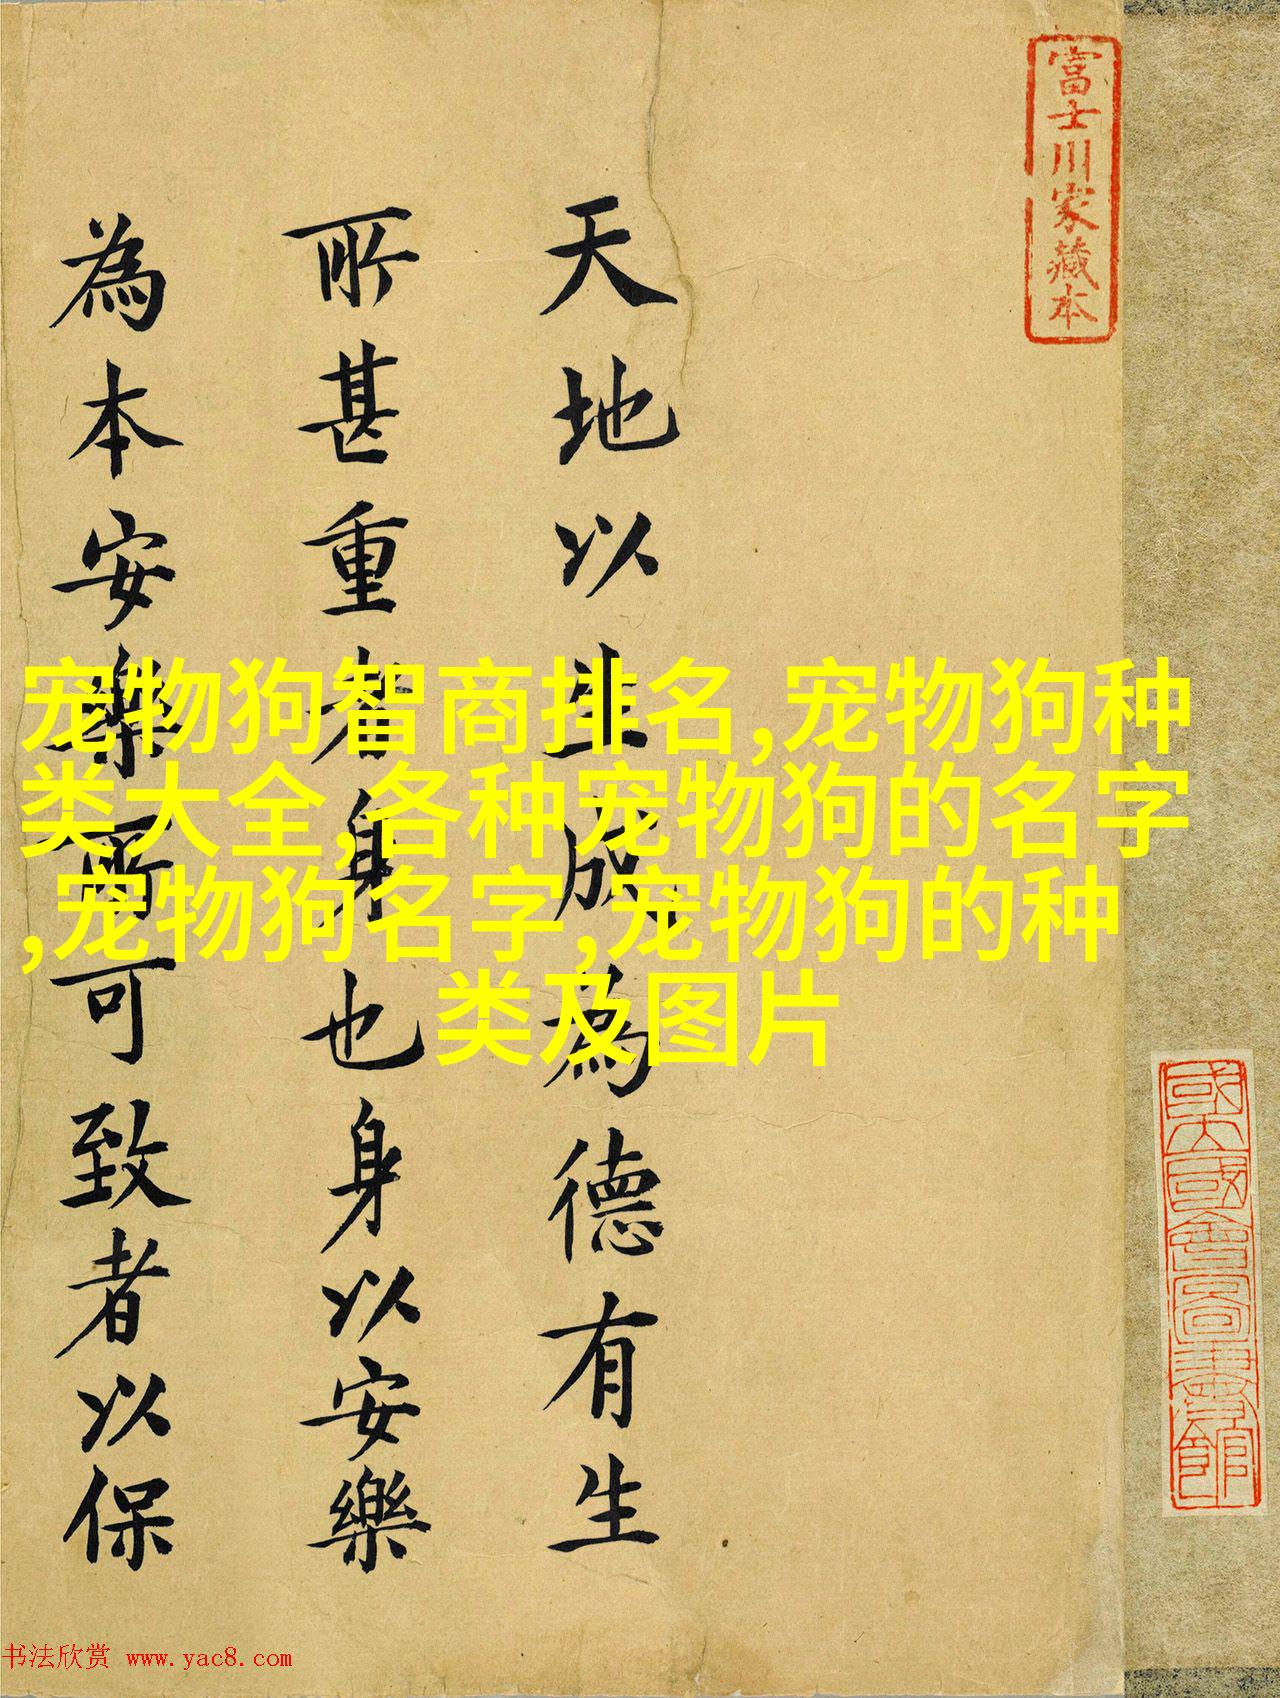 富士川家藏本
天地以生成為德有生
所甚重者身也身以安樂
為本安樂所可致者以保
宠物狗智商排名,宠物狗种
类大全,各种宠物狗的名字
,宠物狗名字,宠物狗的种
类及图片
国立国会图书馆
书法欣赏 www.yac8.com